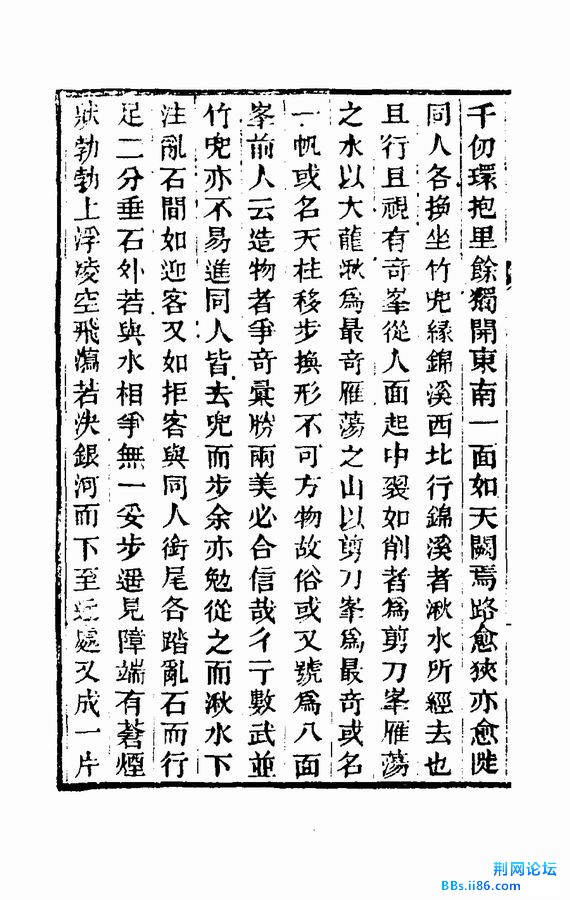 千仞環抱里餘獨開東南一面如天闕焉路愈狹亦愈陡
同人各換坐竹兜緣錦溪西北行錦溪者湫水所經去也
且行且視有奇峯從人面起中裂如削者為剪刀峯雁蕩
之水以大龍湫為最奇雁蕩之山以剪刀峯為最奇或名
一帆或名天柱移步換形不可方物故俗或又號為八面
峯前人云造物者爭奇彙勝兩美必合信哉彳亍數武並
竹兜亦不易進同人皆去兜而步余亦勉從之而湫水下
注亂石間如迎客又如拒客與同人銜尾各踏亂石而行
足二分垂石外若與水相爭無一妥步遥見障端有蒼煙
狀勃勃上浮凌空飛瀉若決銀河而下至近處又成一片
荆网论坛
BBs.ii86.com